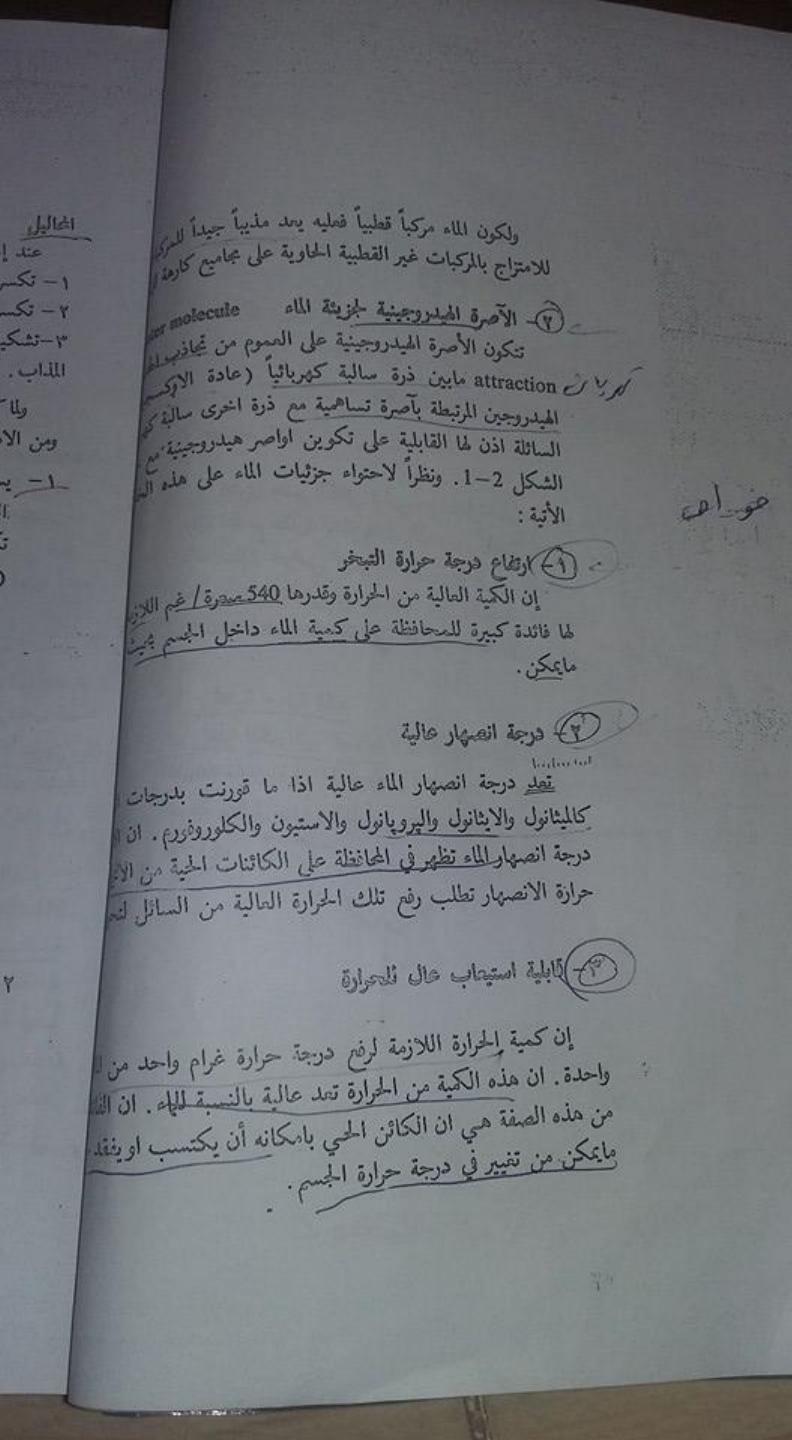 ولكون الماء مركباً قطبياً فعليه يعد مذيباً جيداً
للامتزاج بالمركبات غير القطبية الحاوية على مجاميع كارهة
٢- الآصرة الهيدروجينية لجزيئة الماء molecule
تتكون الأصرة الهيدروجينية على العموم من تجاذب
attraction مابين ذرة سالبة كهربائياً (عادة
الهيدروجين المرتبطة بآصرة تساهمية مع ذرة اخرى سالبة
السائلة اذن لها القابلية على تكوين اواصر هيدروجينية مع
الشكل 2-1. ونظراً لاحتواء جزئيات الماء على هذه
الأتية :
١- ارتفاع درجة حرارة التبخر
إن الكمية العالية من الحرارة وقدرها 540 سعرة / غم
لها فائدة كبيرة للمحافظة على كمية الماء داخل الجسم بحيث
مايمكن .
٢- درجة انصهار عالية
تعد درجة انصهار الماء عالية اذا ما قورنت بدرجات
كالميثانول والايثانول والبروبانول والاستيون والكلوروفورم . ان
درجة انصهار الماء تظهر في المحافظة على الكائنات الحية من
حرارة الانصهار تطلب رفع تلك الحرارة العالية من السائل
٣- قابلية استيعاب عال للحرارة
إن كمية الحرارة اللازمة لرفع درجة حرارة غرام واحد من
واحدة . ان هذه الكمية من الحرارة تعد عالية بالنسبة للماء . ان
من هذه الصفة هي ان الكائن الحي بامكانه أن يكتسب او يفقد
مايمكن من تغيير في درجة حرارة الجسم .
المحاليل
عند
١- تكسر
٢-
٣-
المذاب .
ومن
١-
٢